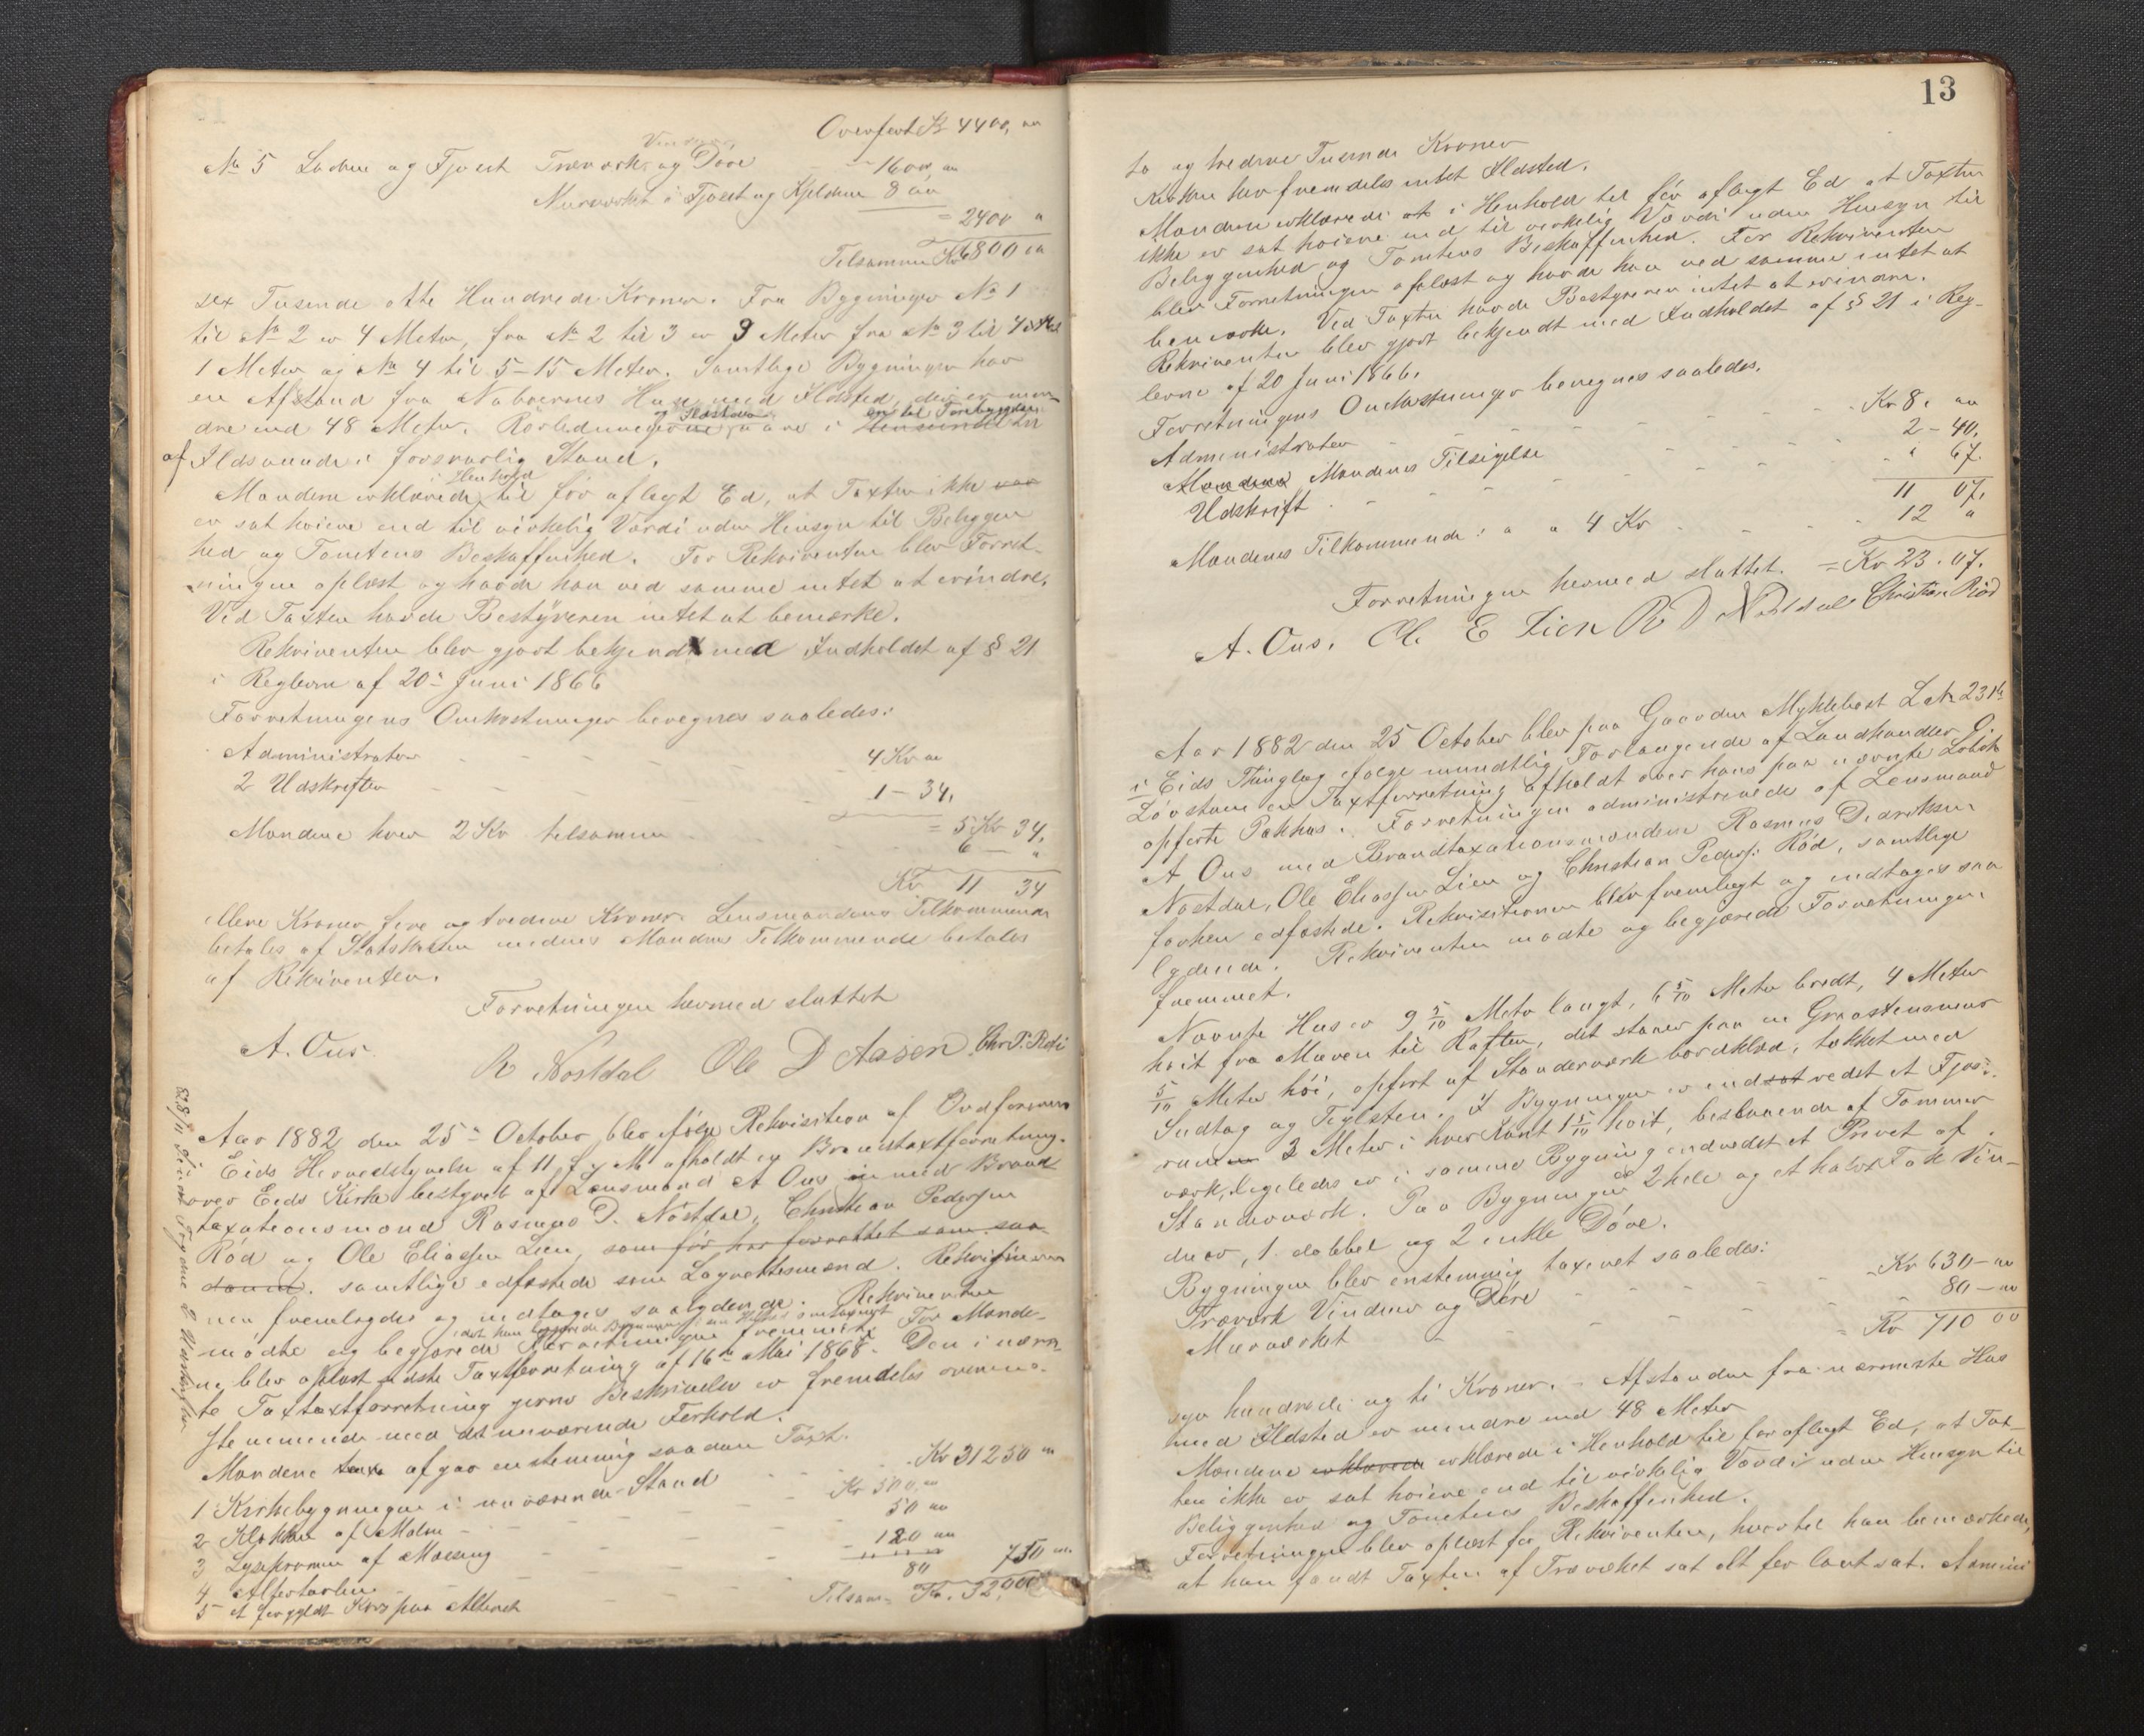 Overfört Kr 4400, "
Vinduer,
No 5 Laden og Fjöset Træværk og Döre 1600, "
Murværket i Fjöset og Kjelderen 800
= 2400 "
Tilsammen Kr 6800 "
sex Tusende otte Hundrede Kroner. Fra Bygninger No 1
til No 2 er 4 Meter, fra No 2 til 3 er 9 Meter fra No 3 til 4
1 Meter og No 4 til 5 - 15 Meter. Samtlige Bygninger har
en Afstand fra Naboernes Hus med Ildsted, der er min-
dre end 48 Meter. Rörledningerne og Ildstederne vare i Henseende til
af Ildsvaade i forsvarlig Stand.
Mændene erklærede i Henhold til för aflagt Ed, at Taxten ikke var
er sat höiere end til virkelig Værdi uden Hensyn til Beliggen
hed og Tomtens Beskaffenhed. For Rekvirenten blev Forret-
ningen oplæst og havde han ved samme intet at erindre.
Ved Taxten havde Bestyreren intet at bemærke.
Rekvirenten blev gjort bekjendt med Indholdet af § 21
i Reglerne af 20de Juni 1866
Forretningens Omkostninger beregnes saaledes:
Administrator 4 Kr "
2 Udskrifter 1 - 34.
= 5 Kr 34.
Mændene hver 2 Kr tilsammen 6 - "
Kr 11 34
elleve Kroner fire og tredive Kroner. Lensmandens Tilkommende
betales af Statskassen medens Mændenes Tilkommende betales
af Rekvirenten.
Forretningen hermed sluttet
A. Ous. R Nostdal Ole D Aasen Chr. P. Röd
Aar 1882 den 25de October blev ifölge Rekvisition af Ordföreren
i Eids Herredstyrelse af 11 f. M. afholdt en Brandtaxtforretning
over Eids Kirke bestyret af Lensmand A Ous med Brand
taxationsmænd Rasmus D. Nöstdal, Christian Pedersen
Röd og Ole Eliassen Lien, som för har forrettet som saa
danne. samtlige edfæstede som Lagrettesmænd. Rekvisitio
nen fremlagdes og indtages saalydende. Rekvirenten
mödte og begjærede Forretningen fremmet. For Mænde-
ne blev oplæst sidste Taxtforretning af 16de Mai 1868. Den i nævn
te Taxtforretning givne Beskrivelse er fremdeles overens-
stemmende med det nuværende Forhold.
Mændene taxe afgav enstemmig saadan Taxt.
1 Kirkebygningen i nuværende Stand Kr 31250 "
2 Klokken af Malm Kr 500 "
3 Lysekronen af Messing 50 "
4 Altertavlen 120 "
5 et forgyldt Kors paa Alteret 80 750 "
Tilsam. Kr. 32,000
13
to og tredive Tusende Kroner
Kirken har fremdeles intet Ildsted.
Mændene erklærede at i Henhold til för aflagt Ed at Taxten
ikke er sat höiere end til virkelig Værdi uden Hensyn til
Beliggenhed og Tomtens Beskaffenhed. For Rekvirenten
blev Forretningen oplæst og havde han ved samme intet at
bemærke. Ved Taxten havde Bestyreren intet at erindre.
Rekvirenten blev gjort bekjendt med Indholdet af § 21 i Reg-
lerne af 20 Juni 1866.
Forretningens Omkostninger beregnes saaledes.
Administrator Kr 8. "
Mændene Mændenes Tilsigelse 2 - 40.
Udskrift " 67.
11 07.
Mændenes Tilkommende: a 4 Kr 12 "
= Kr 23. 07.
Forretningen hermed sluttet.
A. Ous. Ole E Lien R D Nöstdal Christian Röd
Aar 1882 den 25 October blev paa Gaarden Myklebost L No 231
i Eids Thinglag ifölge mundtlig Forlangende af Landhandler O.
Lövstuen en Taxtforretning afholdt over hans paa nævnte
opförte Pakhus. Forretningen administreredes af Lensmand
A Ous med Brandtaxationsmændene Rasmus Didriksen
Nöstdal, Ole Eliassen Lien og Christian Peders. Röd, samtlige
forhen edfæstede. Rekvisitionen blev fremlagt og indtages saa
lydende. Rekvirenten mödte og begjærede Forretningen
fremmet.
Nævnte Hus er 9 5/10 Meter langt, 6 5/10 Meter bredt, 4 Meter
höit fra Muren til Raften, det staaer paa en Graastensmur
5/10 Meter höi, opfört af Standerværk bordklæd, tækket med
Sudtag og Teglsten. I Bygningen er indsat redet et Fjös-
rum 3 Meter i hver Kant 1 5/10 höit, bestaaende af Tömmer
værk, ligeledes er i samme Bygning indredet et Privet af
Standerværk. Paa Bygningen er 2 hele og et halvt Fok Vin-
duer, 1 dobbel og 2 enkle Döre.
Bygningen blev enstemmig taxeret saaledes:
Træværk Vinduer og Döre Kr 630 - "
Murværket 80 - "
Kr 710 00
syv hundrede og ti Kroner. - Afstanden fra nærmeste Hus
med Ildsted er mindre end 48 Meter
Mændene erklærede erklærede i Henhold til för aflagt Ed, at Tax-
ten ikke er sat höiere end til virkelig Værdi uden Hensyn til
Beliggenhed og Tomtens Beskaffenhed.
Forretningen blev oplæst for Rekvirenten, hvortil han bemærkede,
at han fandt Taxten af Træværket sat alt for lavt sat. Admini